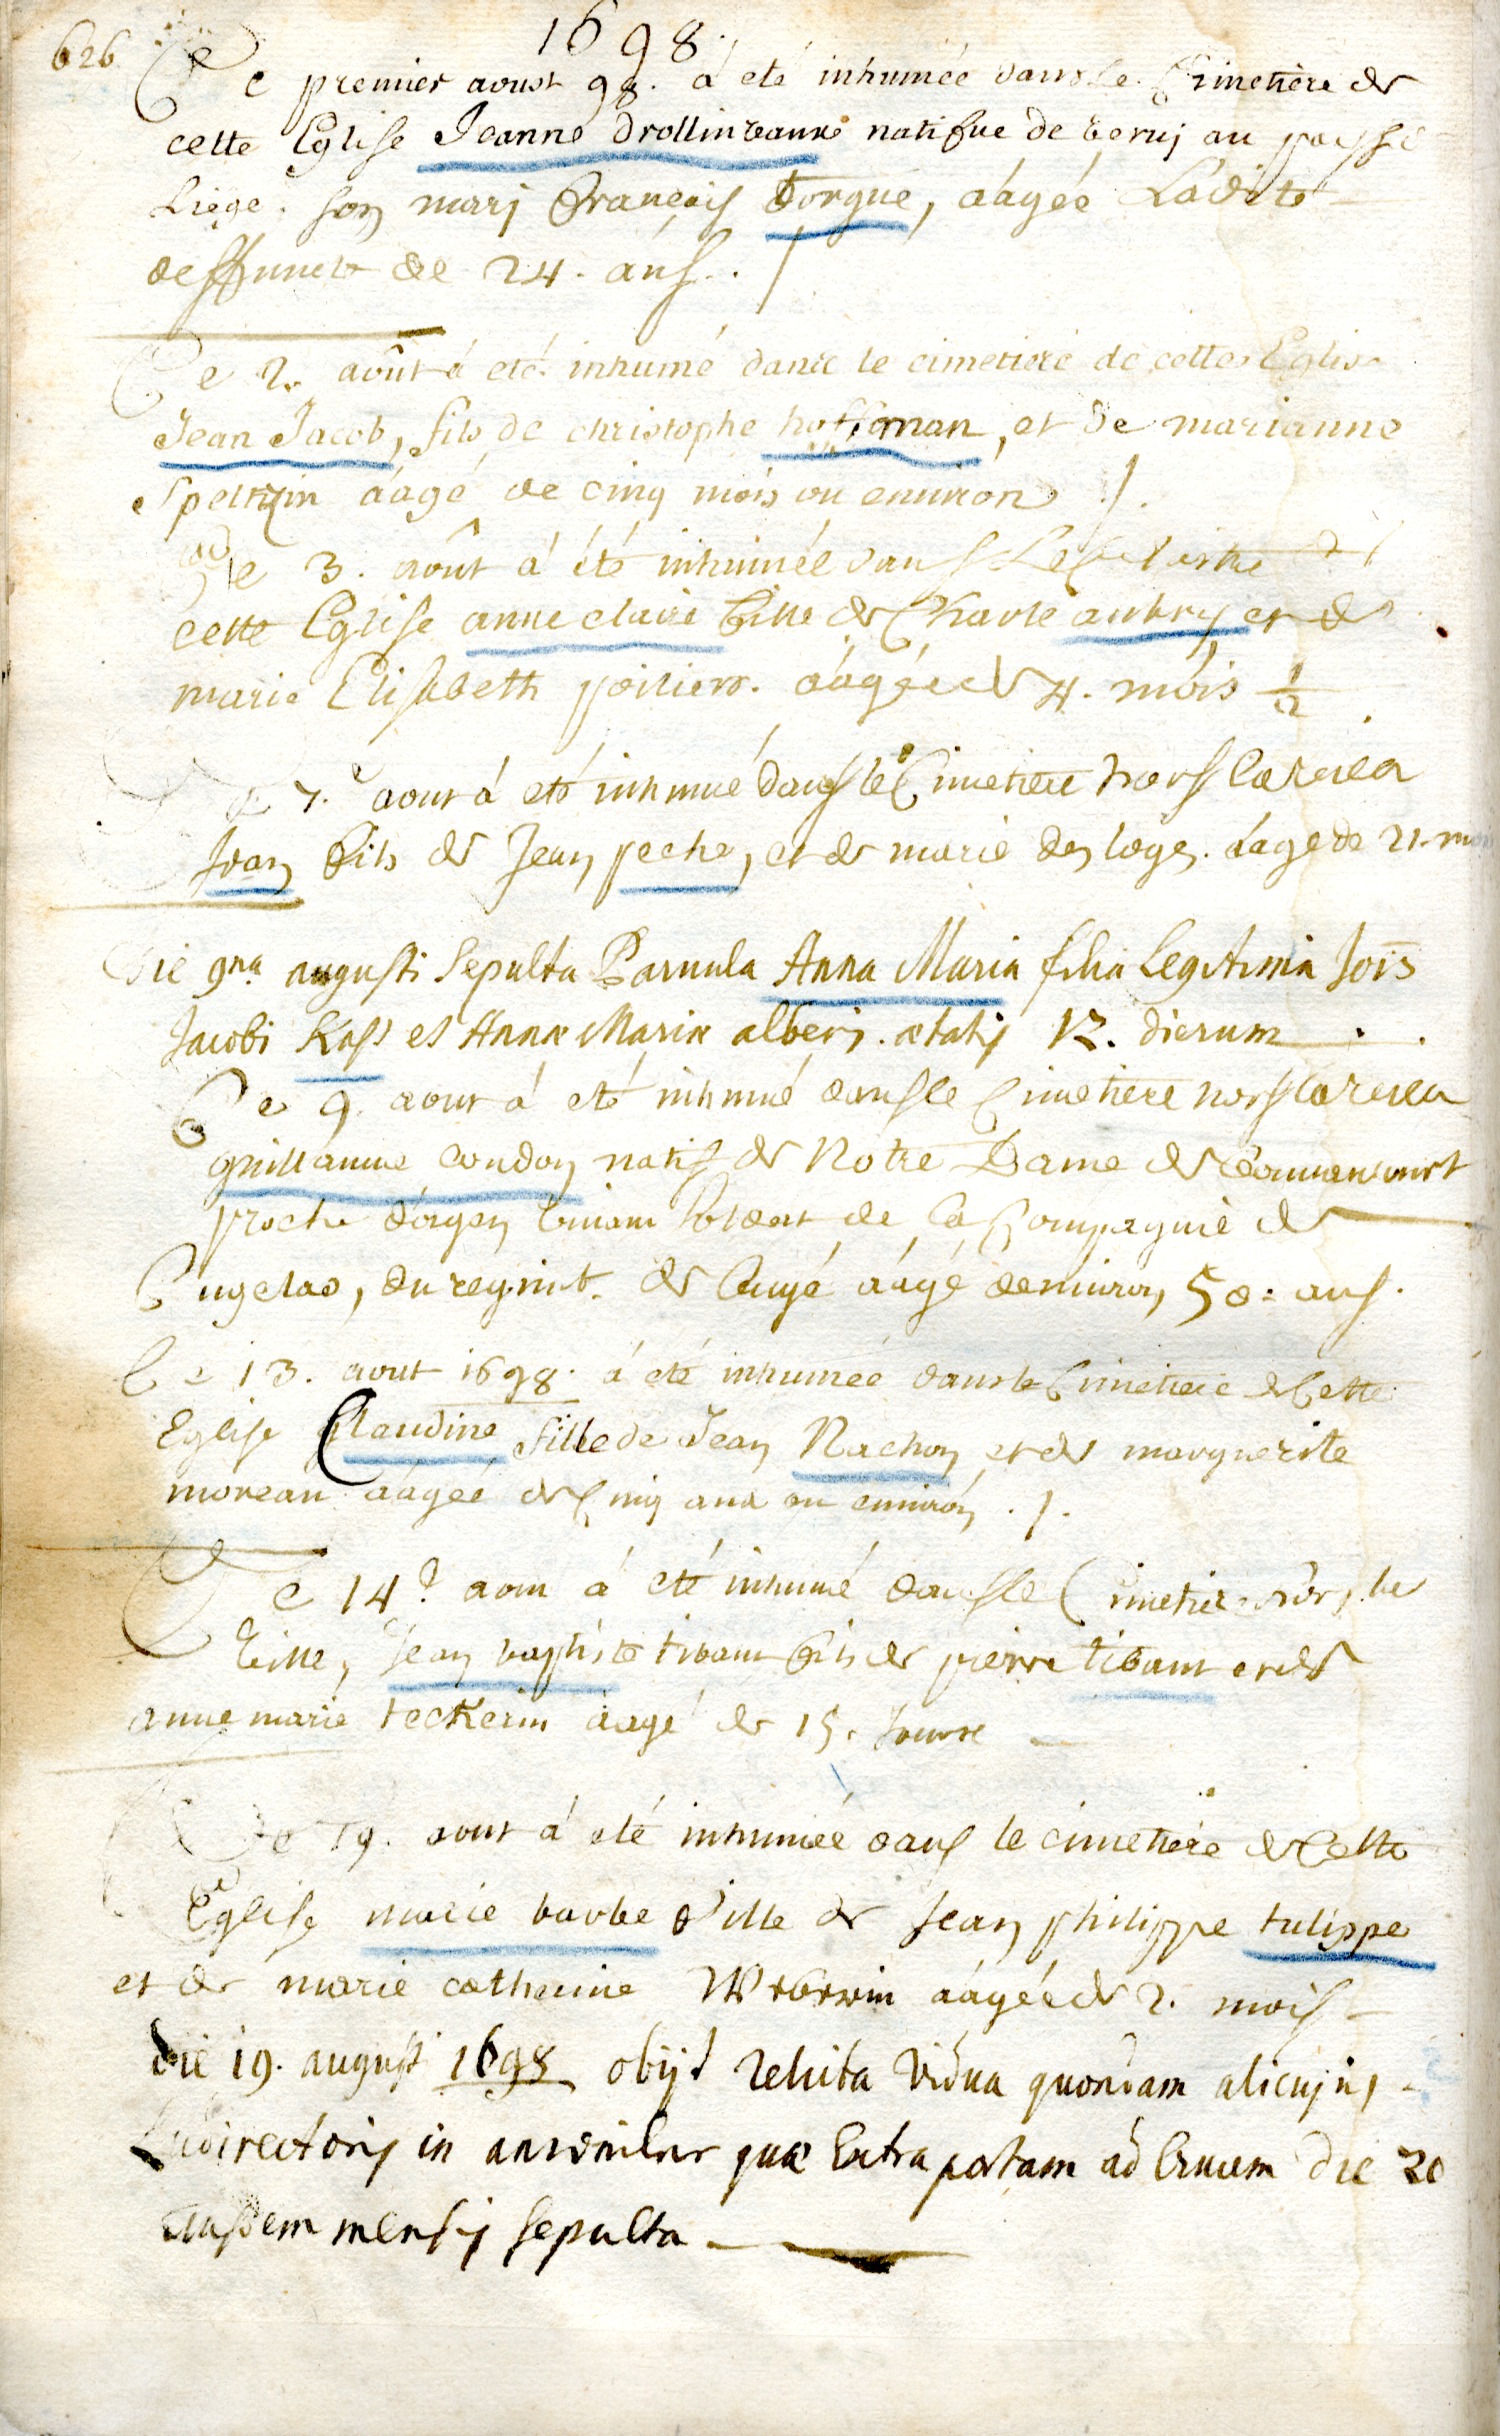 626
1698.
Ce premier aoust 98. á eté inhumée dans le Cimetiere de
cette Eglise Jeanne drollinvaux natifue de au pays de
Liége. son marj François torgue, aágée Ladite
deffuncte de 24. ans. /
Ce 2. aoûst á eté inhumé dans le cimetiere de cette Eglise
Jean Jacob, fils de christophe hoffman, et de marianne
Speltzin aágé de cinq mois ou environ ./.
Ce 3. aoûst á été inhumée dans Le de
cette Eglise anne claire fille de Charle aubry et de
marie Elisabeth poitiers. aágée de 4. mois 1/2.
Ce 7.e aout á eté inhumé dans le Cimetiere hors la ville
Jean fils de Jean peche, et de marie des loges. áagé de 21. mois
Die 9na augusti Sepulta Parvula Anna Maria filia Legitima Jois
Jacobi Kass et Annæ Mariæ alberi. ætatis 12. dierum
Ce 9. aout á eté inhumé dans le Cimetiere hors la ville
guillaume coudon natif de Notre Dame de
proche d'agen vivant soldat de la Compagnie de
Cugelas, du regimt. de aágé denviron 50 = ans.
Ce 13. aout 1698. á eté inhumée dans le Cimetiere de Cette
Eglise Claudine fille de Jean Nachon et de marguerite
moreau aágée de Cinq ans ou environ ./.
Ce 14e aout á eté inhumé dans le Cimetiere hors la
Ville, Jean baptiste tibaut fils de pierre tibaut et de
anne marie teckerin áagé de 15. Jours
Ce 19. aout á eté inhumée dans le cimetiére de Cette
Eglise marie barbe fille de Jean philippe tulippe
et de marie catherine Weberin aágée de 2. mois
die 19. augusti 1698 obijt relicta vidua quondam alicujus
Ludirectoris in anweiler quæ Extra portam ad Crucem die 20
ejusdem mensis sepulta